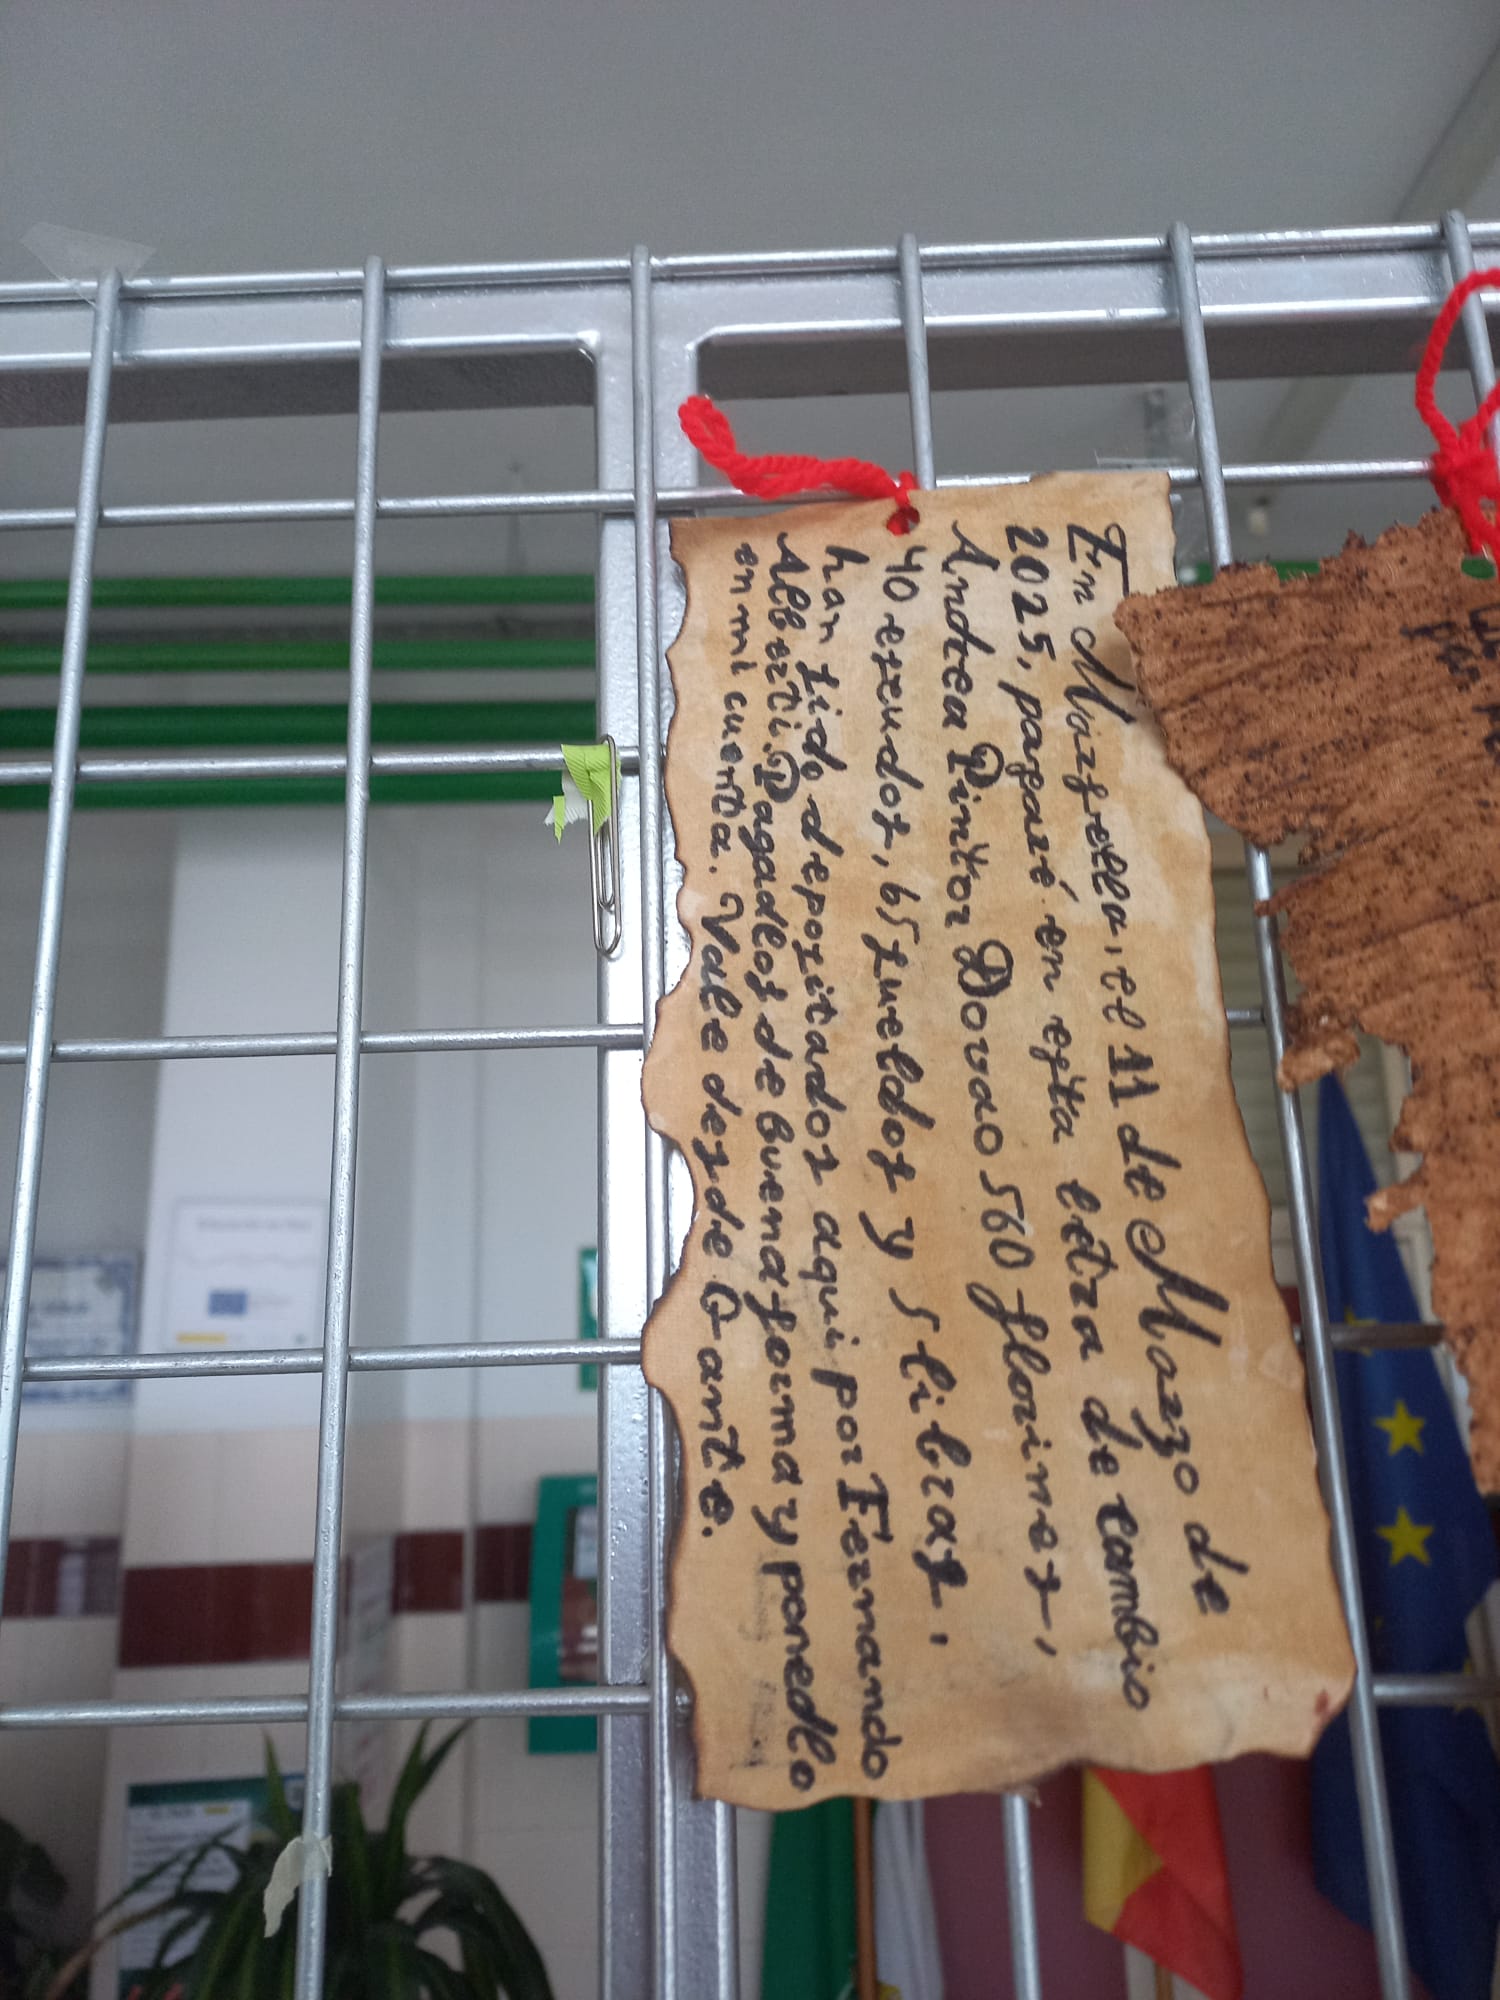 En Marsella, el 11 de Marzo de
2025, pagaré en esta letra de cambio
Andrea Pintor Dovao 560 florines,
40 escudos, 65 sueldos y 5 libras,
han sido depositados aqui por Fernando
Alberti. Pagadlos de buena forma y ponedlo
en mi cuenta. Vale desde Q ante.